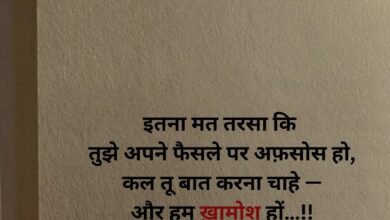 इतना मत तरसा कि
तुझे अपने फैसले पर अफ़सोस हो,
कल तू बात करना चाहे —
और हम खामोश हों...!!